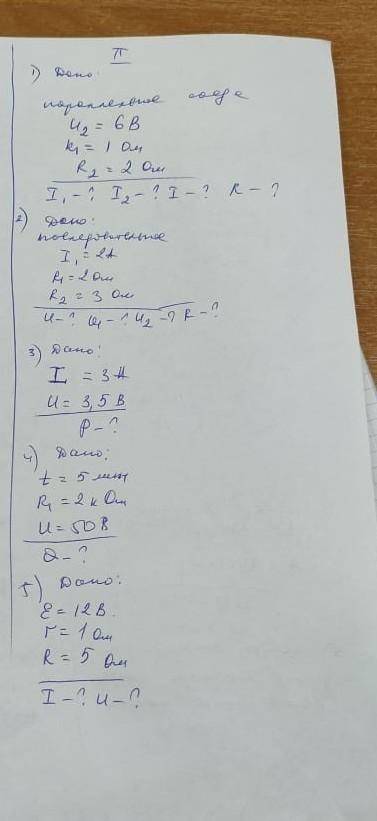 II
1) Дано:
параллельное соед
U₂ = 6 В
R₁ = 1 Ом
R₂ = 2 Ом
I₁ - ? I₂ - ? I - ? R - ?
2) Дано:
последовательное
I₁ = 2А
R₁ = 2 Ом
R₂ = 3 Ом
U - ? U₁ - ? U₂ - ? R - ?
3) Дано:
I = 3 А
U = 3,5 В
P - ?
4) Дано:
t = 5 мин
R₁ = 2 к Ом
U = 50 В
Q - ?
5) Дано:
Ɛ = 12 В.
r = 1 Ом
R = 5 Ом
I - ? U - ?